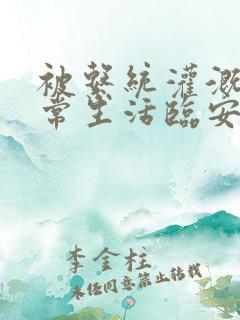 被系統灌溉
常生活臨安
李金柱
未经同意禁止转载